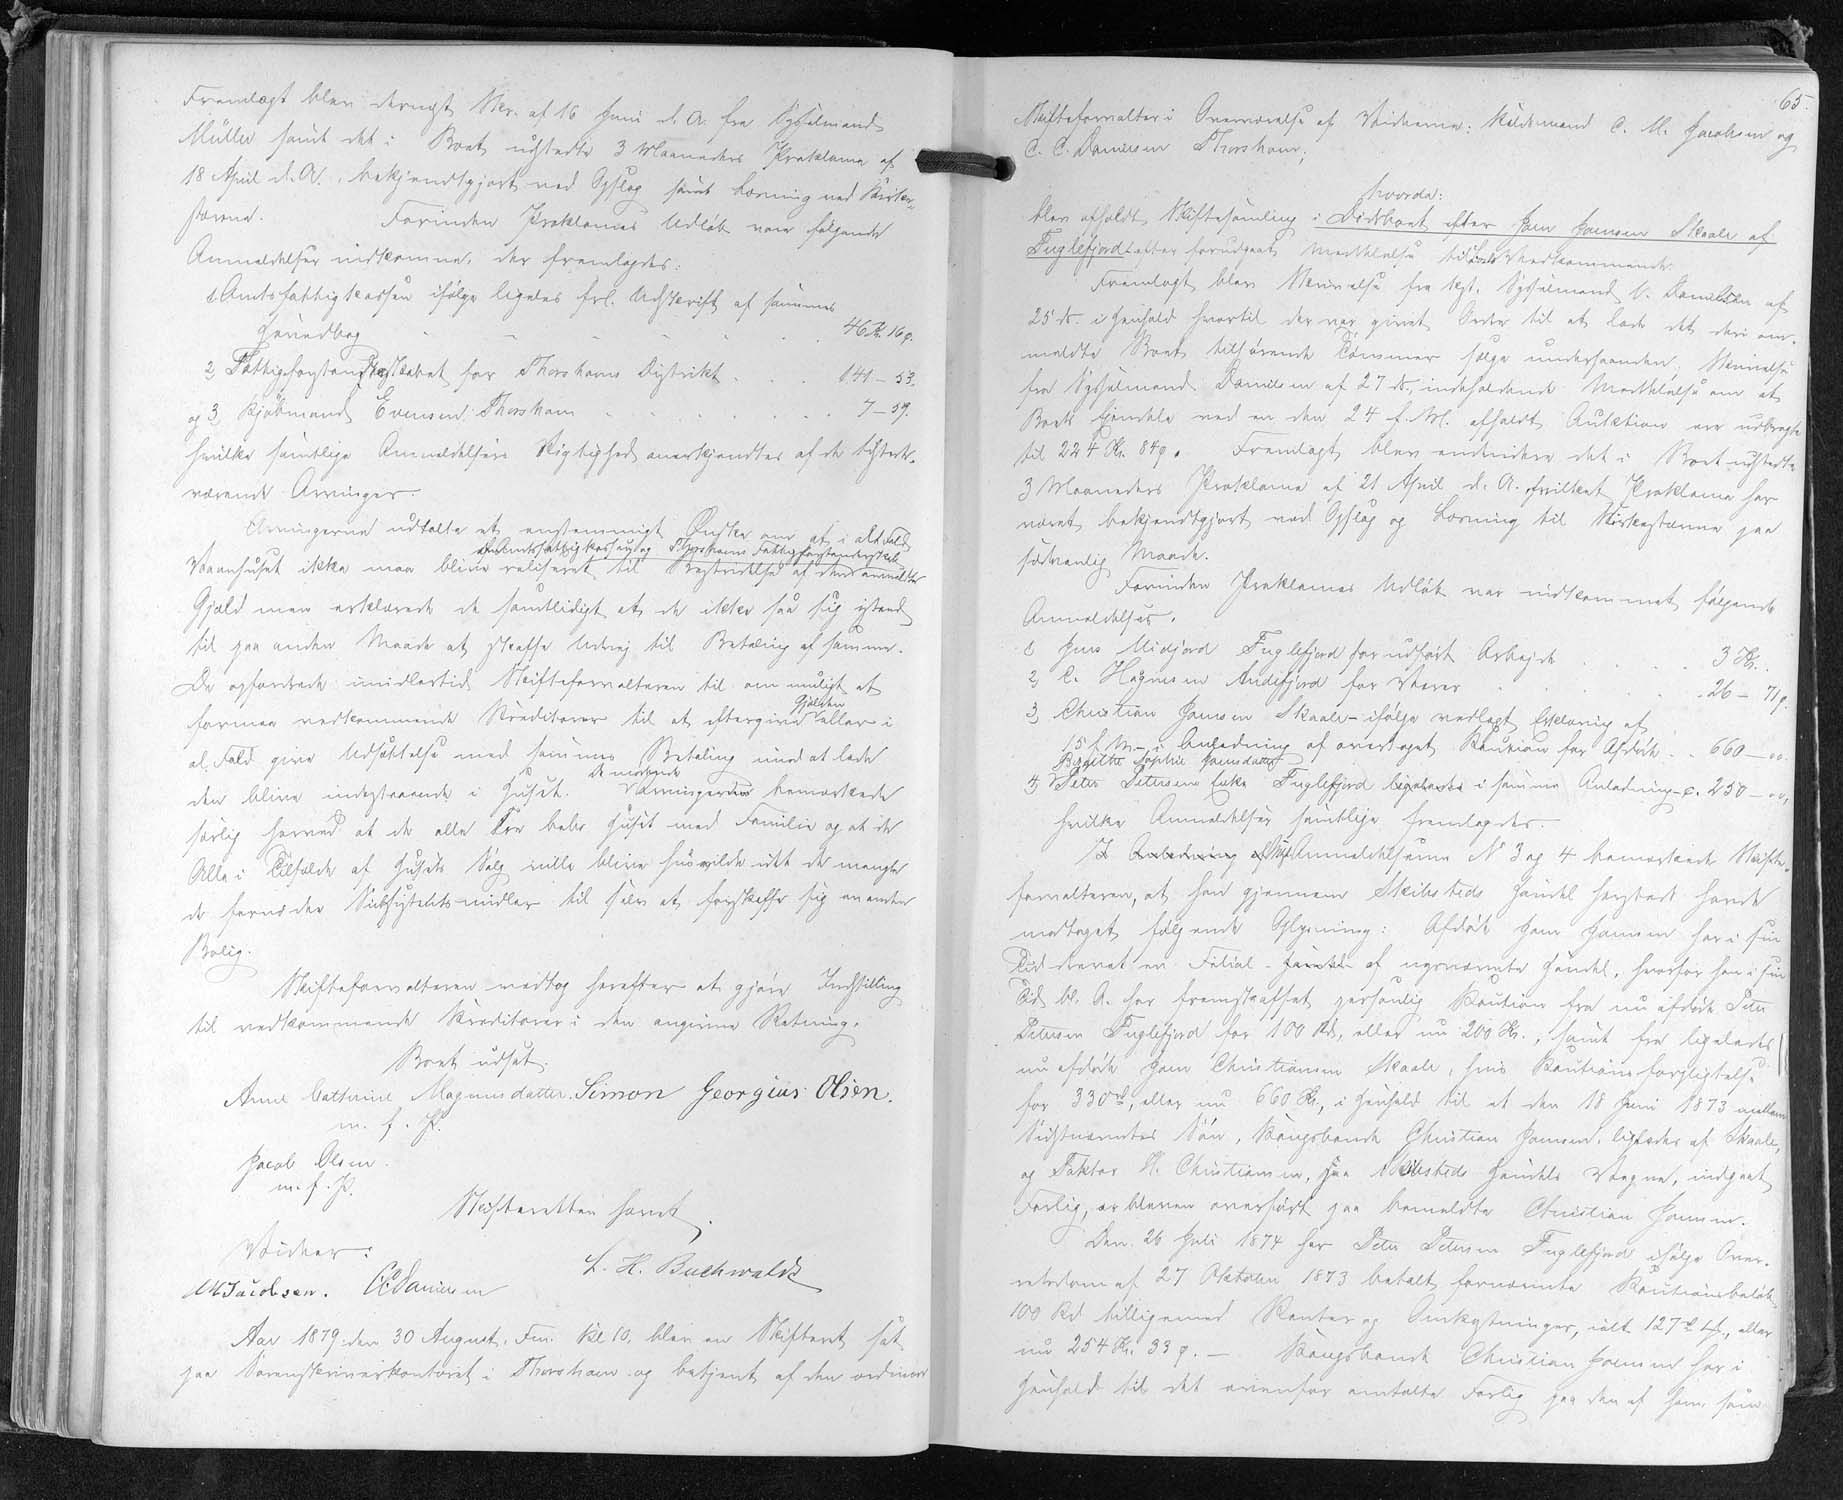 Fremlagt blev dernæst Skr. af 16 Juni d. A. fra Sysselmand
Müller samt det i Boet udstedte 3 Maaneders Proklama af
18 April d. A., bekjendtgjort ved Opslag samt Læsning ved Kirke-
stævne. Forinden Proklamas Udløb vare følgende
Anmeldelser indkomne, der fremlagdes:
1, Amtsfattigkassen ifølge ligeledes frl. Udskrift af sammes
Hovedbog 46 Kr. 16 ø.
2, Fattigforstanderskabet for Thorshavns Distrikt 141 – 53.
og 3, Kjøbmand Evensen Thorshavn 7 – 59.
hvilke samtlige Anmeldelsers Rigtighed anerkjendtes af de tilstede-
værende Arvinger.
Arvingerne udtalte et enstemmigt Ønske om at i alt Fald
de Amtsfattigkassen og Thorshavns Fattigforstanderskab
Vaanhuset ikke maa blive realiseret til Bestridelse af den anmeldte
Gjæld men erklærede de samtidigt at de ikke saa sig istand
til paa anden Maade at skaffe Udvej til Betaling af samme.
De opfordrede imidlertid Skifteforvalteren til om muligt at
Gjælden
formaa vedkommende Kreditorer til at eftergive eller i
al Fald give Udsættelse med sammes Betaling imod at lade
de mødende
den blive indestaaende i Huset. Arvingerne bemærkede
særlig herved at de alle Tre bebo Huset med Familie og at de
Alle i Tilfælde af Husets Salg ville blive husvilde idet de mangle
de fornødne Subsistentsmidler til selv at forskaffe sig en anden
Bolig.
Skifteforvalteren vedtog herefter at gjøre Indstilling
til vedkommende Kreditorer i den angivne Retning.
Boet udsat.
Anne Cathrine Magnusdatter. Simon Georgius Olsen.
m. f. P.
Jacob Olsen.
m. f. P.
Skifteretten hævet.
Vidner:
L. H. Buchwaldt
CM Jacobsen. CC Danielsen
Aar 1879 den 30 August, Fm. Kl 10, blev en Skifteret sat
paa Sorenskriverkontoret i Thorshavn og betjent af den ordinære
65.
Skifteforvalter i Overværelse af Vidnerne: Kildemand C. M. Jacobsen og
C. C. Danielsen Thorshavn;
hvorda:
blev afholdt Skiftesamling i Dødsboet efter Joen Joensen Skaale af
Fuglefjord efter forudgaaet Meddelelse til Vedkommende.
Fremlagt blev Skrivelse fra kgt. Sysselmand V. Danielsen af
25 ds. i Henhold hvortil der var givet Ordre til at lade det deri om-
meldte Boet tilhørende Tømmer sælge underhaanden; Skrivelse
fra Sysselmand Danielsen af 27 ds. indeholdende Meddelelse om at
Boets Ejendele ved en den 24 f. M. afholdt Auktion ere udbragte
til 224 Kr. 84 ø. Fremlagt blev endvidere det i Boet udstedte
3 Maaneders Proklama af 21 April d. A., hvilket Proklama har
været bekjendtgjort ved Opslag og Læsning til Kirkestævne paa
sædvanlig Maade.
Forinden Proklamas Udløb var indkommet følgende
Anmeldelser.
1, Jens Midjord Fuglefjord for udført Arbejde 3 Kr.
2, C. Hognesen Andefjord for Varer 26 – 71 ø.
3, Christian Joensen Skaale – ifølge vedlagt Erklæring af
15 f. M. – i Anledning af overtaget Kaution for Afdøde 660 – oo.
Birgithe Sophie Joensdatter
4, Peter Petersens Enke Fuglefjord ligeledes i samme Anledning c. 250 – oo,
hvilke Anmeldelser samtlige fremlagdes.
I Anledning af Anmeldelserne No 3 og 4 bemærkede Skifte-
forvalteren, at han gjennem Skibsteds Handel herstedt havde
modtaget følgende Oplysning: Afdøde Joen Joensen har i sin
Tid drevet en Filial af nysnævnte Handel, hvorfor han i sin
Tid bl. A. har fremskaffet personlig Kaution fra nu afdøde Peter
Petersen Fuglefjord for 100 Rd., eller nu 200 Kr., samt fra ligeledes
nu afdøde Joen Christiansen Skaale, hvis Kautionsforpligtelse
for 330 rd, eller nu 660 Kr., i Henhold til et den 18 Juni 1873 mellem
Sidstnævntes Søn, Kongsbonde Christian Joensen, ligeledes af Skaale,
og Faktor H. Christiansen, paa Skibsteds Handels Vegne, indgaaet
Forlig, er bleven overført paa bemeldte Christian Joensen.
Den 26 Juli 1874 har Peter Petersen Fuglefjord ifølge Over-
retsdom af 27 Oktober 1873 betalt fornævnte Kautionsbeløb
100 Rd tilligemed Renter og Omkostninger, ialt 127 rd, eller
nu 254 Kr. 33 ø. – Kongsbonde Christian Joensen har i
Henhold til det ovenfor omtalte Forlig paa den af ham som